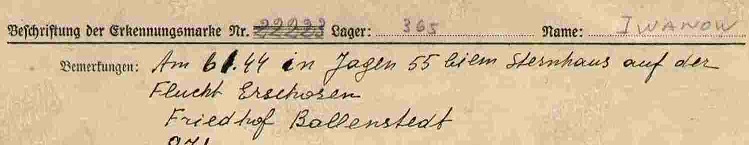 Beschriftung der Erkennungsmarke Nr. 22223 Lager: 365 Name: IWANOW
Bemerkungen: Am 6.1.44 in Jagen 55 beim Sternhaus auf der
Flucht Erschosen
Friedhof Ballenstedt